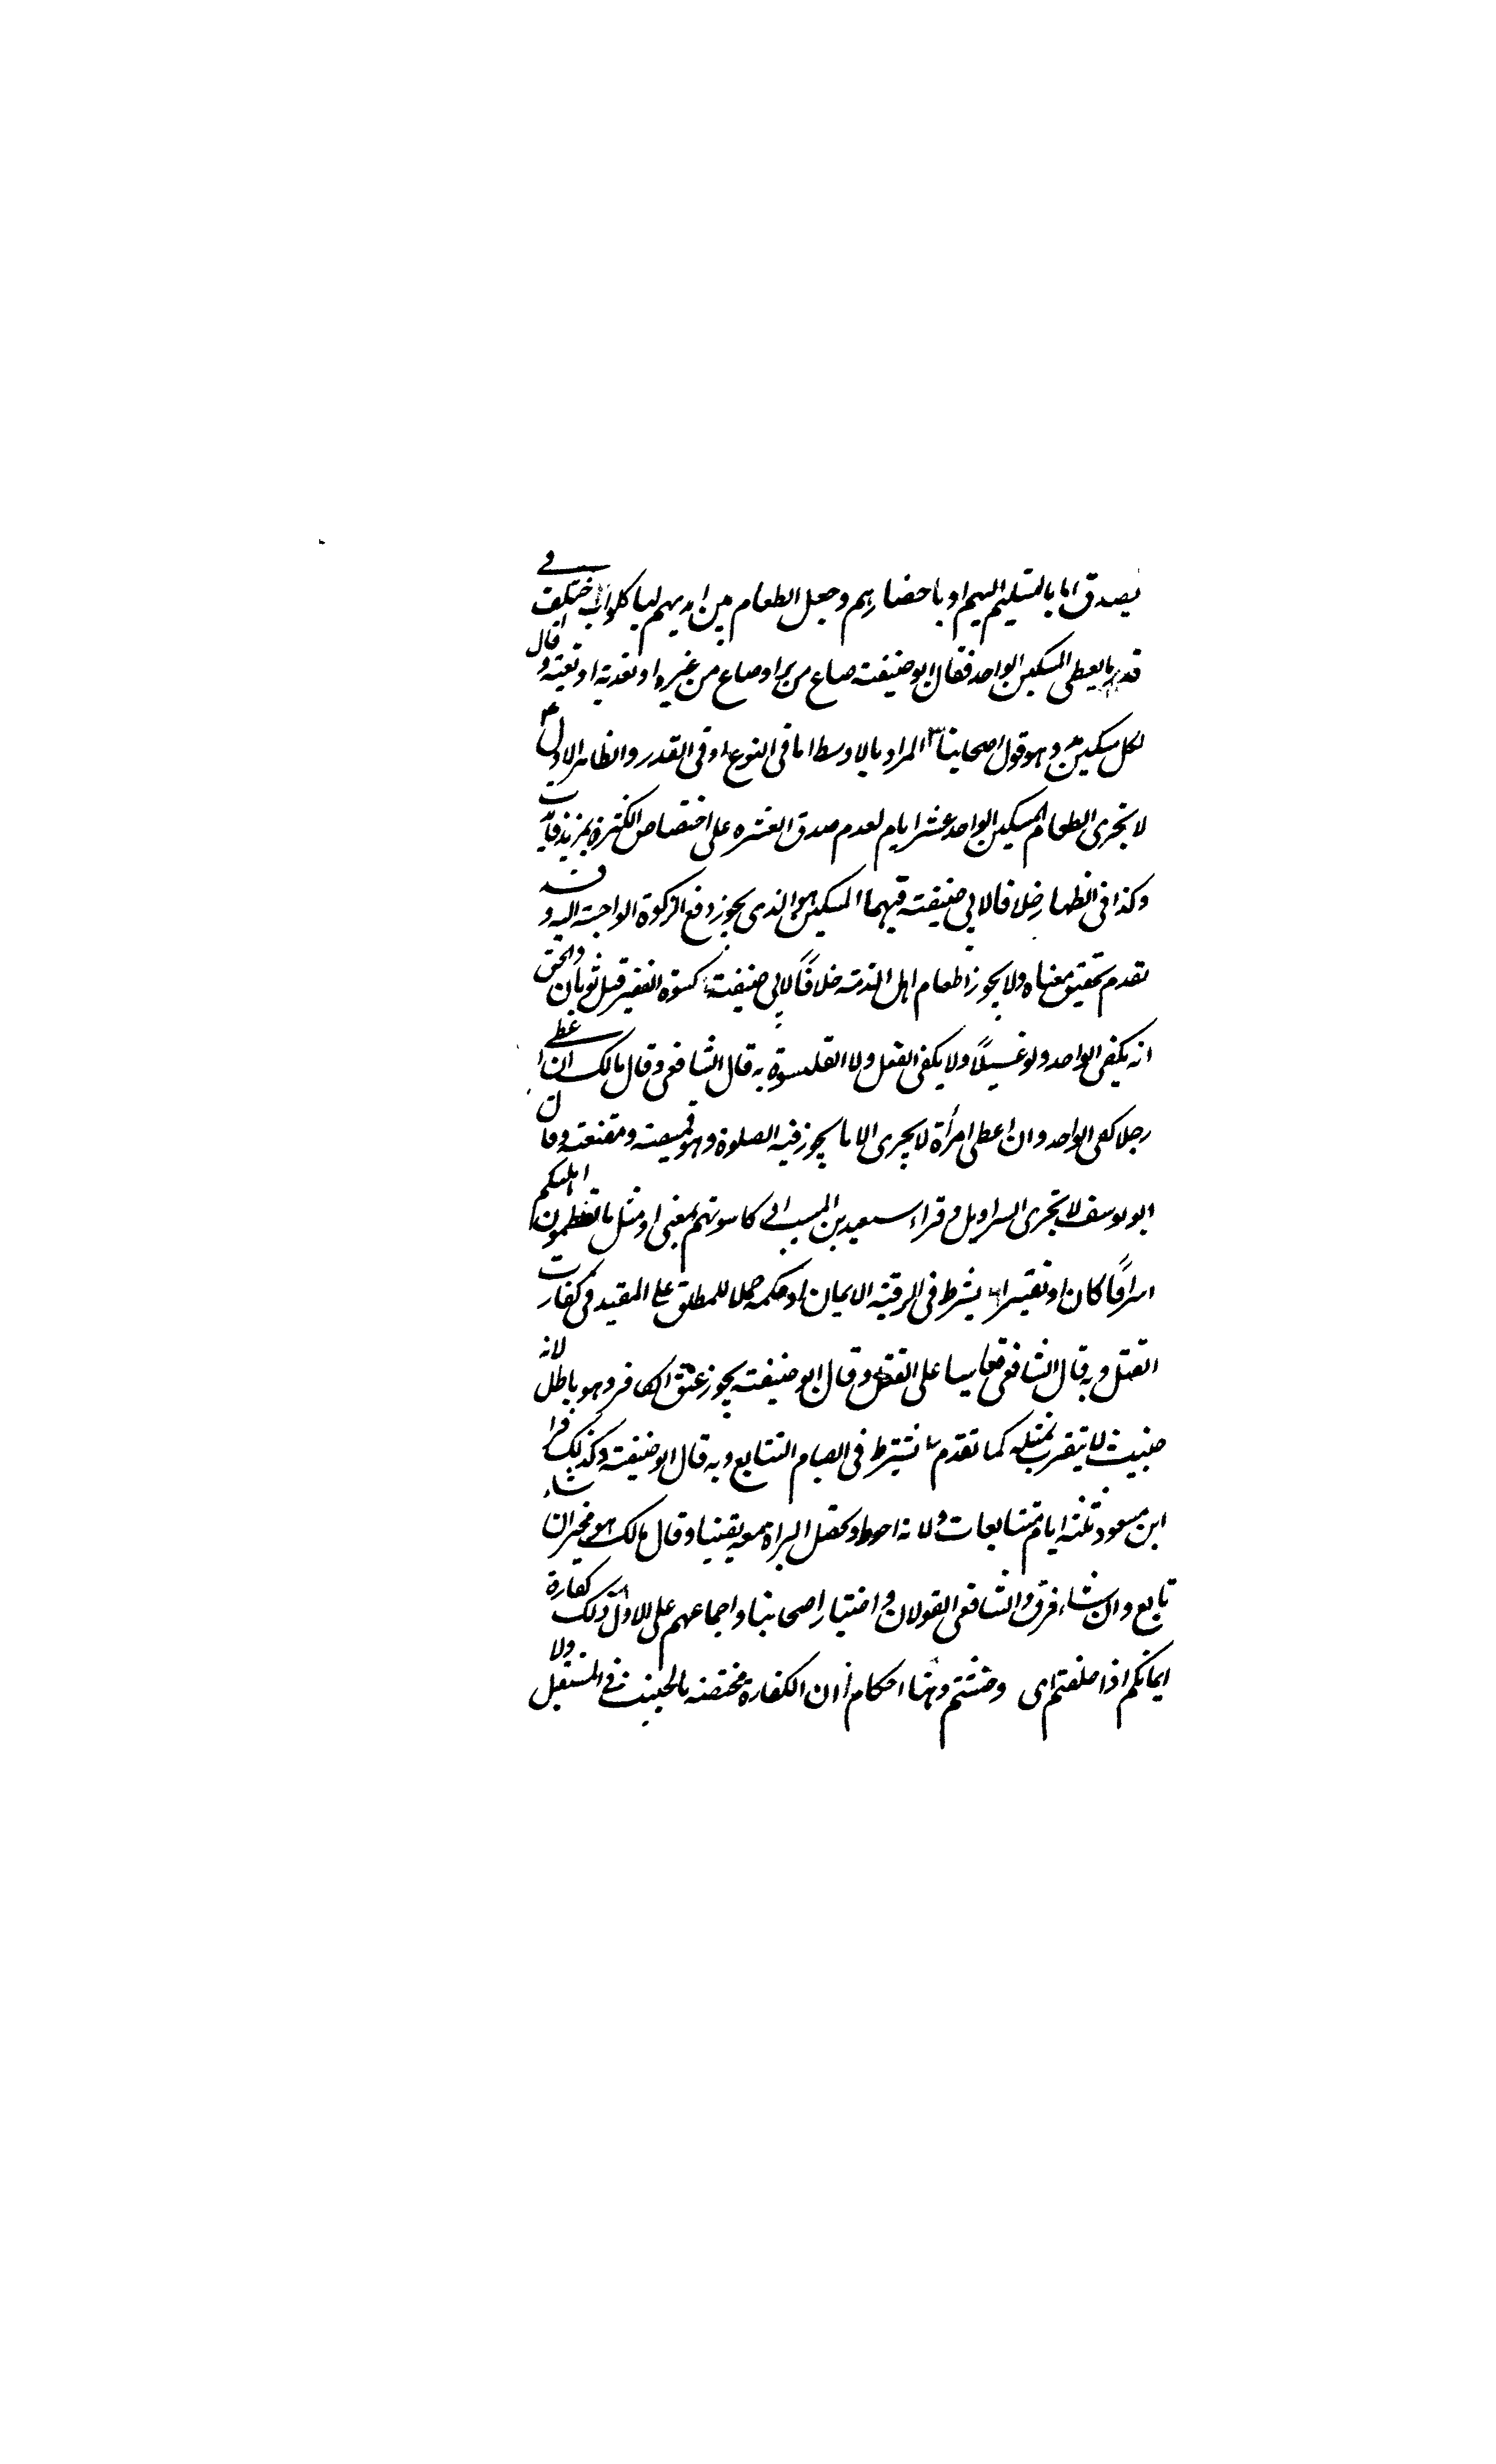 يصدق اما بالتسليم اليهم او باحضارهم وجعل الطعام بين ايديهم لياكلوا ب اختلف في
قدر ما يعطى المسكين الواحد فقال ابو حنيفة صاع من بر او صاع من غيره او تغدية او تعشية وقال
لكل مسكين مد وهو قول اصحابنا ٣ المراد بالاوسط اما في النوع او في القدر والظاهر الاول ٤
لا يجزى الطعام المسكين الواحد عشر ايام لعدم صدق العشره على اختصاص الكثرة بمزيد فايدت
وكذا في الظهار خلافا لابي حنيفة فيهما المسكين هو الذى يجوز دفع الزكوة الواجبة اليه وقد
تقدم تحقيق معناه ولا يجوز اطعام اهل الذمة خلافًا لابي حنيفة كسوة الفقير قيل ثوبان والحق
انه يكفى الواحد ولو غسيلًا ولا يكفى النعل ولا القلنسوة به قال الشافعى وقال مالك ان اعطى
رجلا كفى الواحد وان اعطى امرأة لا يجزى الا ما يجوز فيه الصلوة وهو قميصه ومقنعة وقال
ابو يوسف لا يجزى السراويل وقراء سعيد بن المسيب اى كاسوتهم بمعنى او مثل ما تطعمون اهليكم
اسرافًا كان او تقتيرا يشرط في الرقبة الايمان او حكمه حملا للمطلق على المقيد في كفارت
القتل وبه قال الشافعى قياسا على القتل وقال ابو حنيفة يجوز عتق الكافر وهو باطل لانه
خبيث لا يتقرب بمثله كما تقدم يشترط في الصيام التتابع وبه قال ابو حنيفة وكذلك قرا
ابن مسعود ثلثه ايام متتابعات ولانه احوط ويحصل البراة معه يقينا وقال مالك هو مخير ان شاء
تابع وان شاء فرق والشافعى القولان واختيار اصحابنا واجماعهم على الاول ذلك كفارة
ايمانكم اذا حلفتم اى وحنثتم وهنا احكام أ ان الكفارة مختصه بالحنث في المستقبل ولا